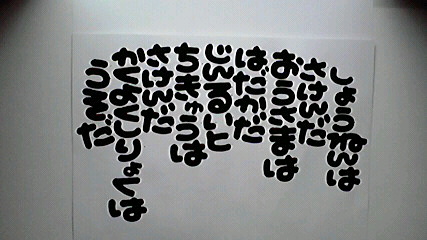 しょうねんは
さけんだ
おうさまは
はだかだ
じんるいと
ちきゅうは
さけんだ
かくよくしりょくは
うそだ